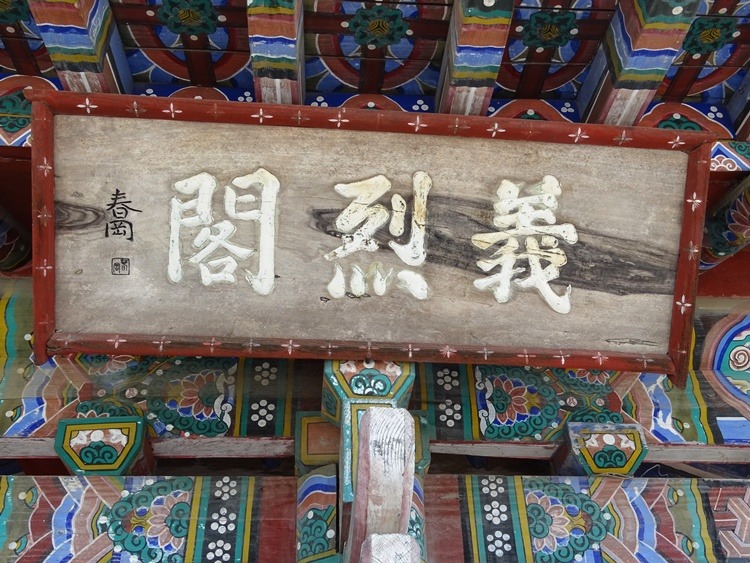 義烈閣
春岡